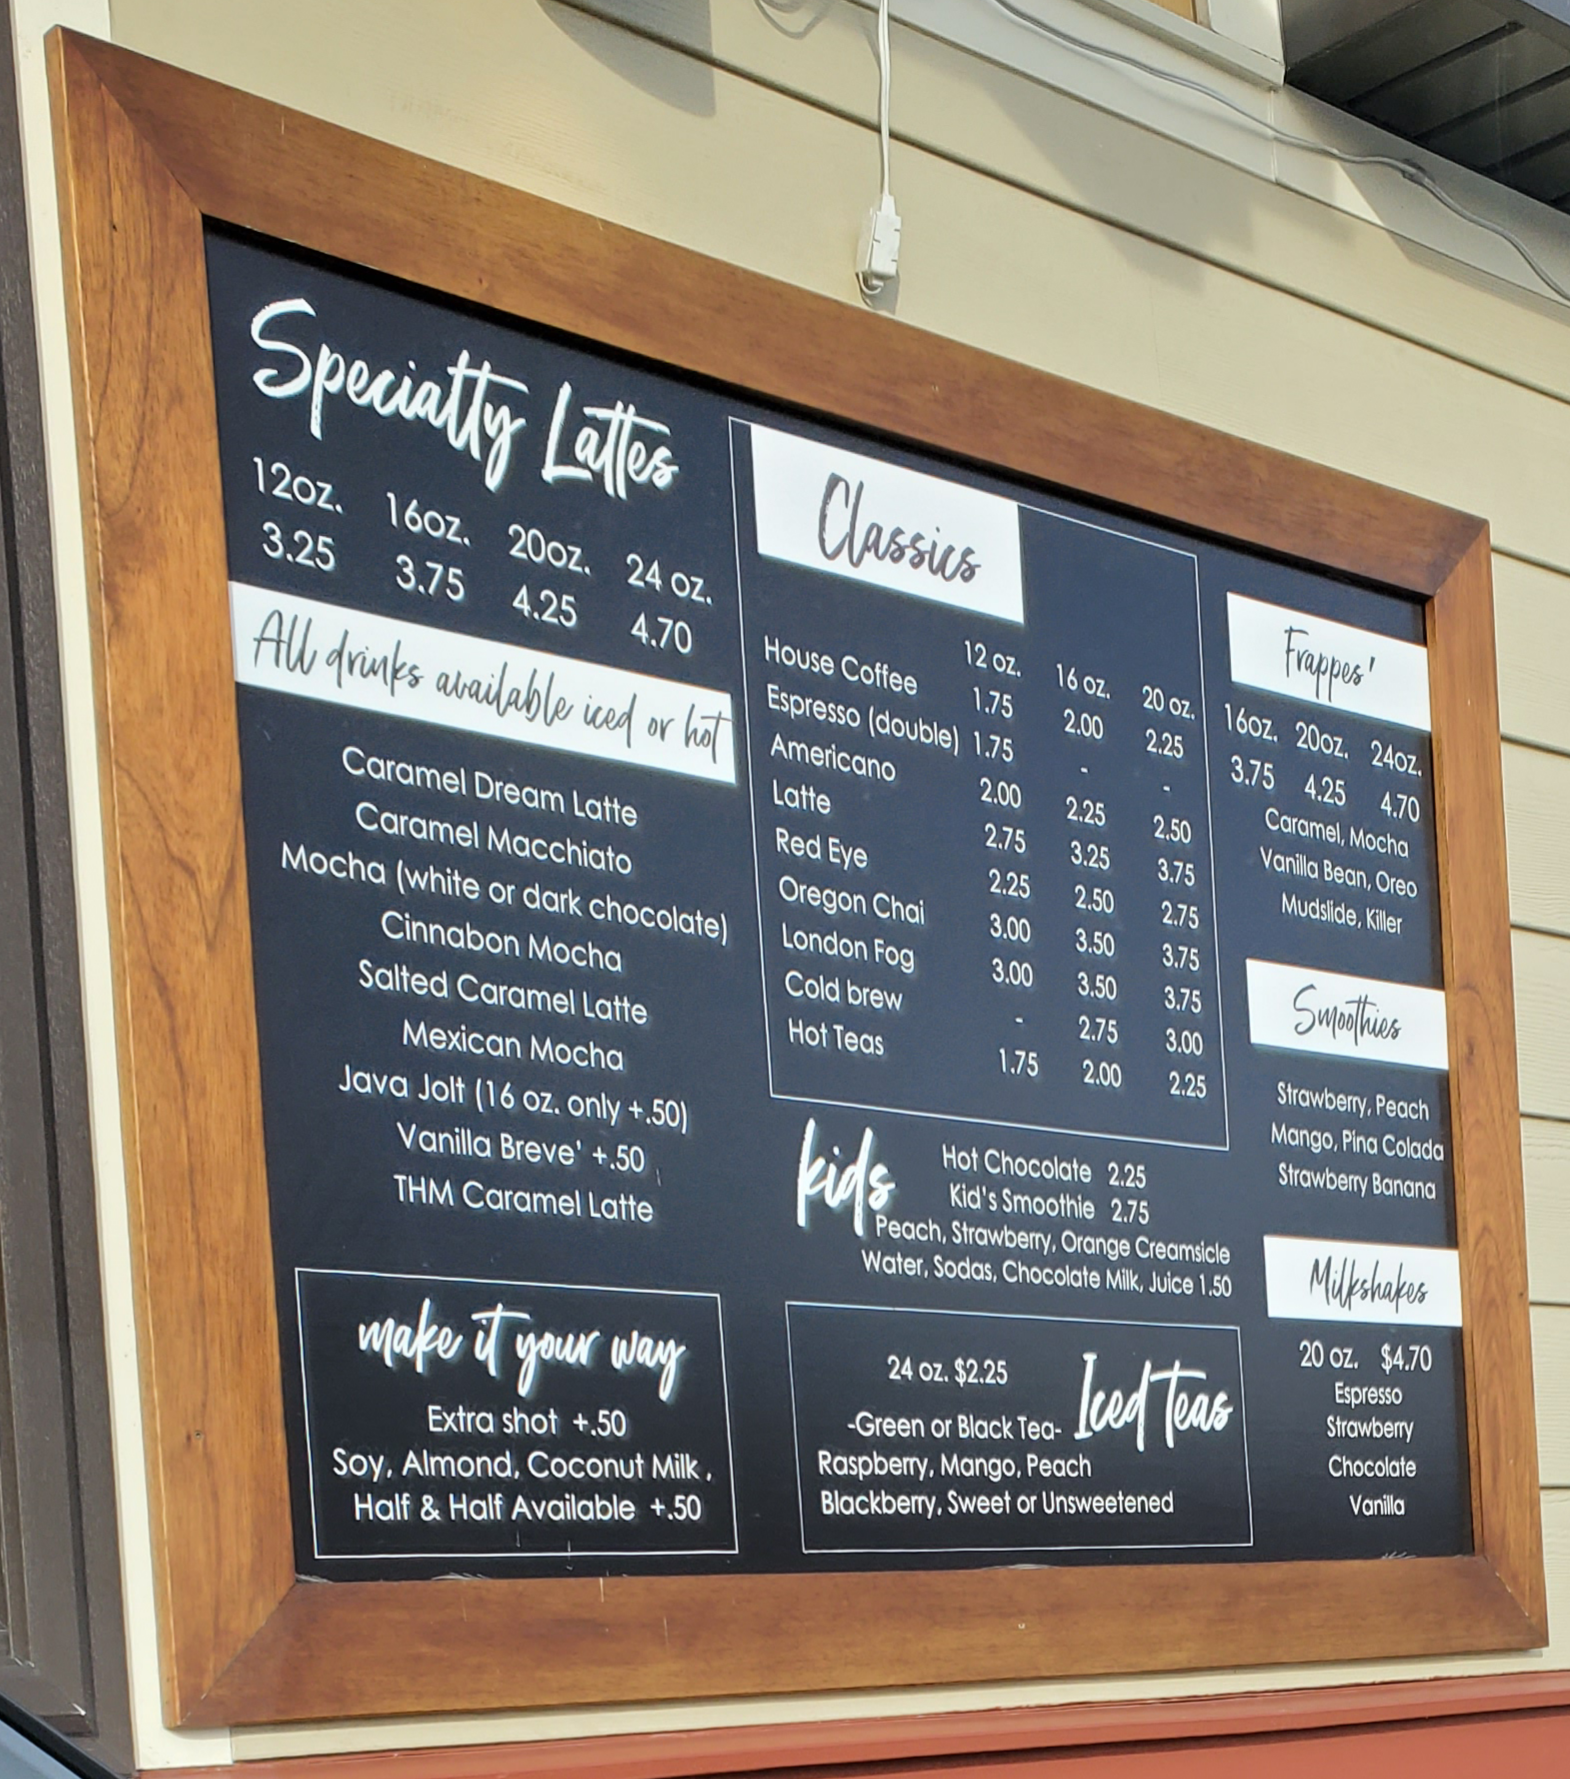 Specialty Lattes
12oz. 16oz. 20oz. 24 oz.
3.25 3.75 4.25 4.70
All drinks available iced or hot
Caramel Dream Latte
Caramel Macchiato
Mocha (white or dark chocolate)
Cinnabon Mocha
Salted Caramel Latte
Mexican Mocha
Java Jolt (16 oz. only +.50)
Vanilla Breve' +.50
THM Caramel Latte
make it your way
Extra shot +.50
Soy, Almond, Coconut Milk ,
Half & Half Available +.50
Classics
12 oz. 16 oz. 20 oz.
House Coffee 1.75 2.00 2.25
Espresso (double) 1.75 - -
Americano 2.00 2.25 2.50
Latte 2.75 3.25 3.75
Red Eye 2.25 2.50 2.75
Oregon Chai 3.00 3.50 3.75
London Fog 3.00 3.50 3.75
Cold brew - 2.75 3.00
Hot Teas 1.75 2.00 2.25
kids
Hot Chocolate 2.25
Kid's Smoothie 2.75
Peach, Strawberry, Orange Creamsicle
Water, Sodas, Chocolate Milk, Juice 1.50
Iced Teas
24 oz. $2.25
-Green or Black Tea-
Raspberry, Mango, Peach
Blackberry, Sweet or Unsweetened
Frappes'
16oz. 20oz. 24oz.
3.75 4.25 4.70
Caramel, Mocha
Vanilla Bean, Oreo
Mudslide, Killer
Smoothies
Strawberry, Peach
Mango, Pina Colada
Strawberry Banana
Milkshakes
20 oz. $4.70
Espresso
Strawberry
Chocolate
Vanilla